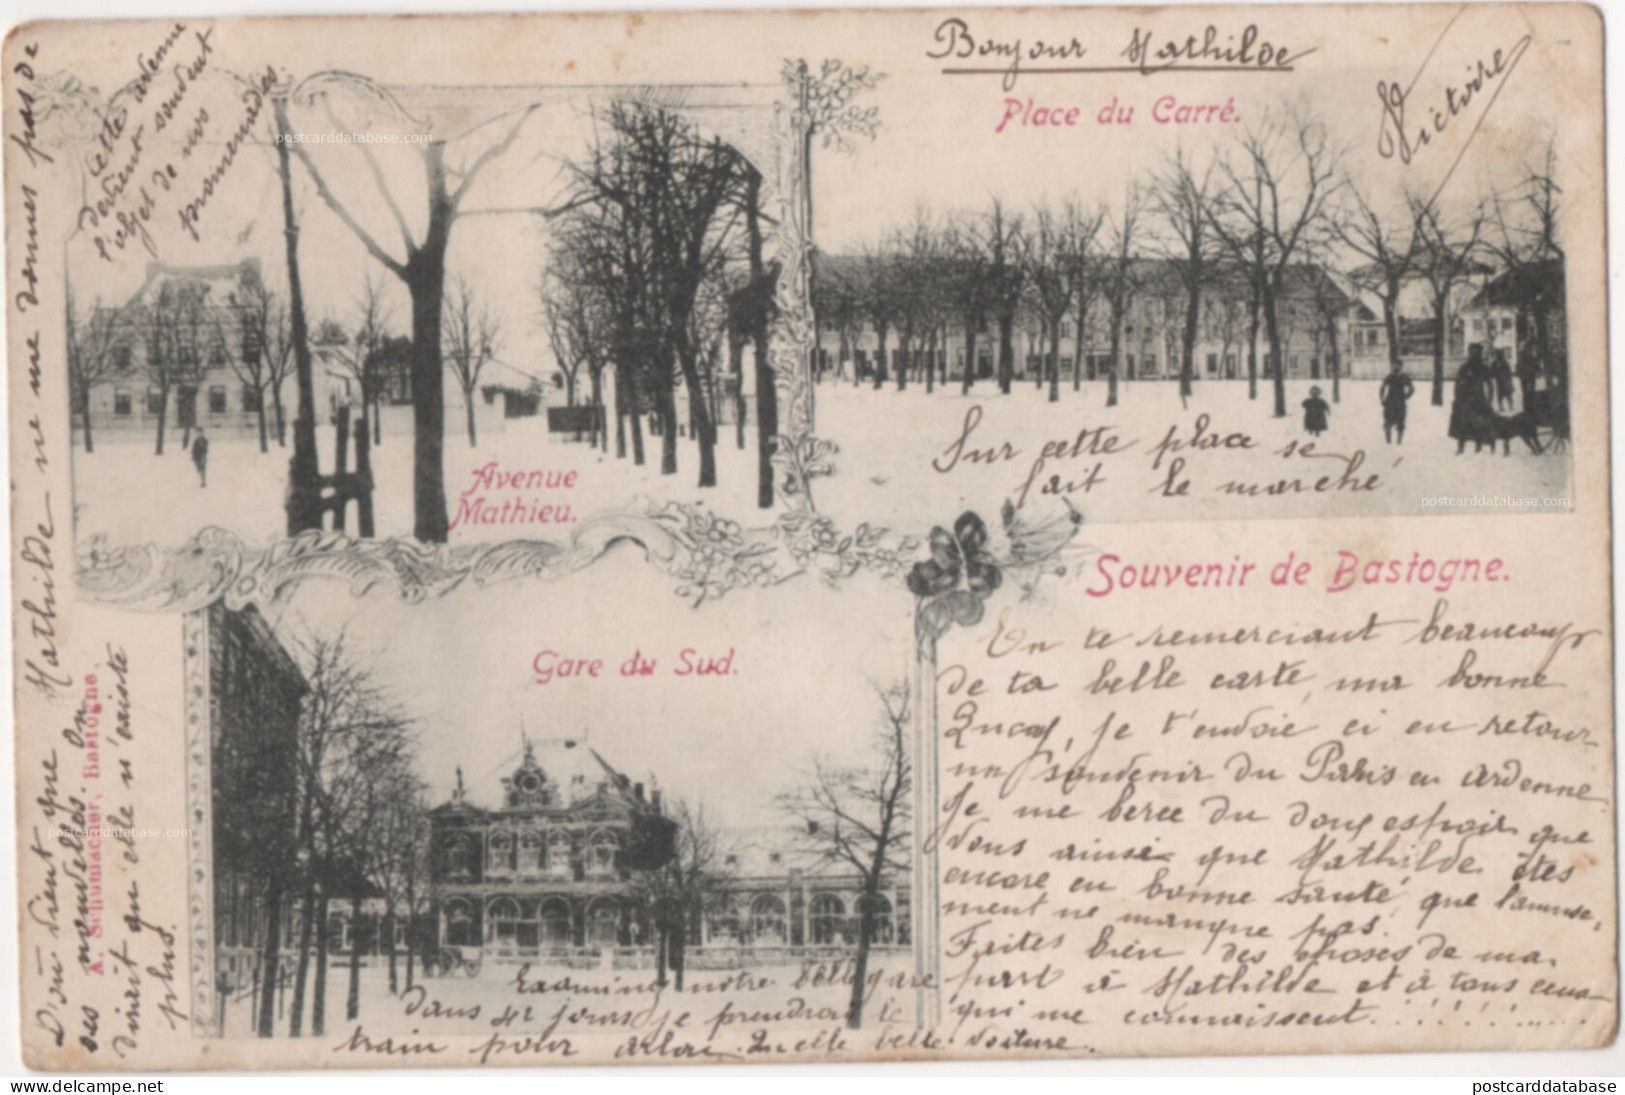 Bonjour Mathilde
Victoire
Place du Carré.
Cette avenue
devient souvent
l'objet de nos
promenades.
postcarddatabase.com
Avenue
Mathieu.
Sur cette place se
fait le marché
postcarddatabase.com
Souvenir de Bastogne.
Gare du Sud.
En te remerciant beaucoup
de ta belle carte, ma bonne
je t'envoie ci en retour
un souvenir du Paris en ardenne
Je me berce du doux espoir que
vous ainsi que Mathilde êtes
encore en bonne santé, que l'amuse-
ment ne manque pas.
Faites bien des choses de ma
part à Mathilde et à tous ceux
qui me connaissent.........
Examinez notre belle gare
Dans 42 jours je prendrai le
train pour arlon. Quelle belle voiture.
D'où vient que Mathilde ne me donnes pas de
ses nouvelles. On
dirait qu'elle n'existe
plus.
A. Schumacher, Bastogne.
postcarddatabase.com
www.delcampe.net
postcarddatabase